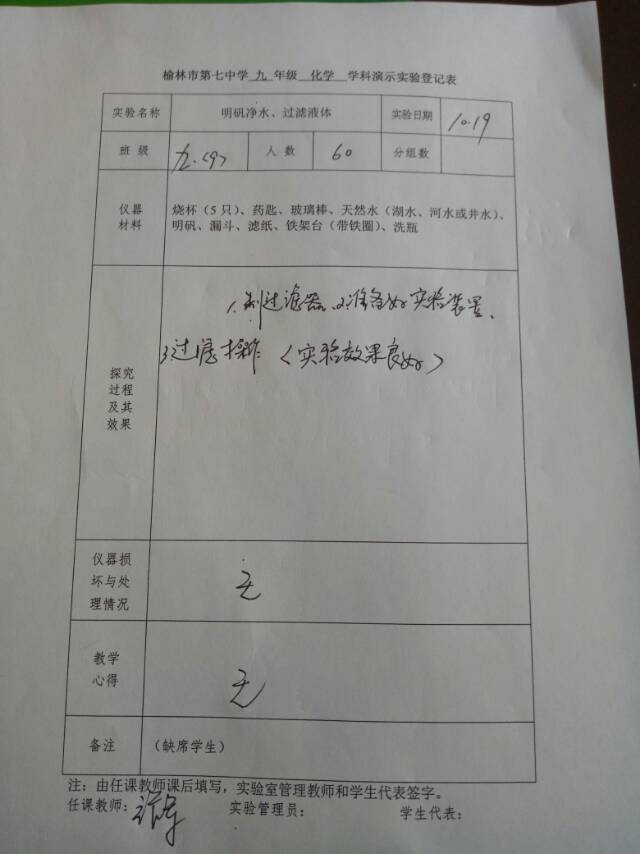 榆林市第七中学 九 年级 化学 学科演示实验登记表
实验名称 明矾净水、过滤液体 实验日期 10.19
班 级 九.(9) 人 数 60 分组数
仪器 烧杯（5只）、药匙、玻璃棒、天然水（湖水、河水或井水）、
材料 明矾、漏斗、滤纸、铁架台（带铁圈）、洗瓶
1.制过滤器 2.准备好实验装置.
3.过滤操作（实验效果良好）
探究
过程
及其
效果
仪器损
坏与处 无
理情况
教学
心得 无
备注 （缺席学生）
注：由任课教师课后填写，实验室管理教师和学生代表签字。
任课教师： 实验管理员： 学生代表：